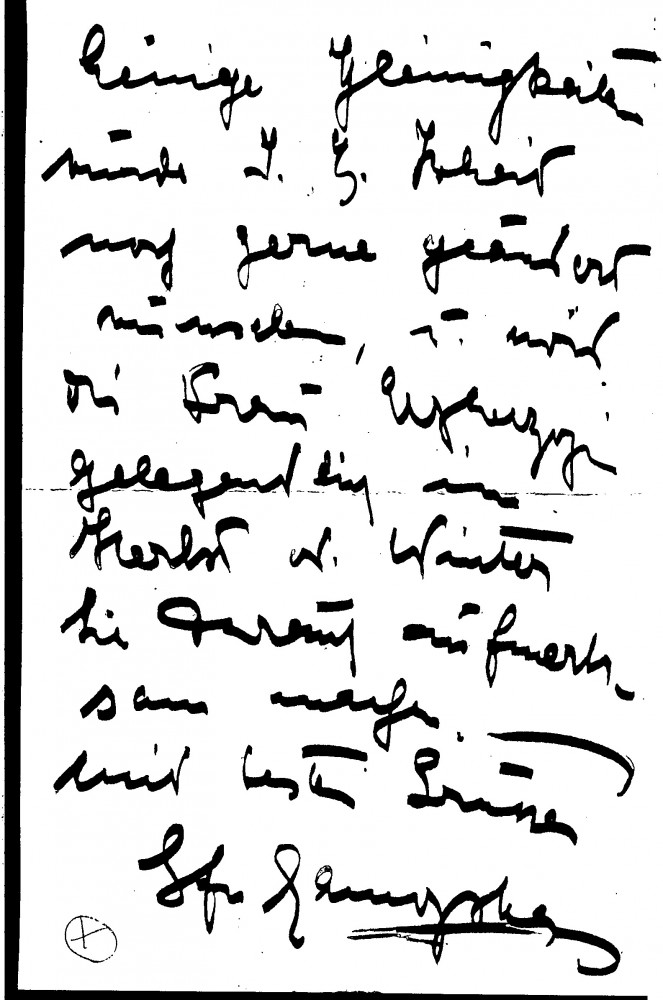 Einige Kleinigkeiten
würde I. K. Hoheit
noch gerne geändert
wünschen, u. wird
die Frau Erzherzogin
gelegentlich im
Herbst o. Winter
Sie darauf aufmerk-
sam machen.
Mit besten Grüssen